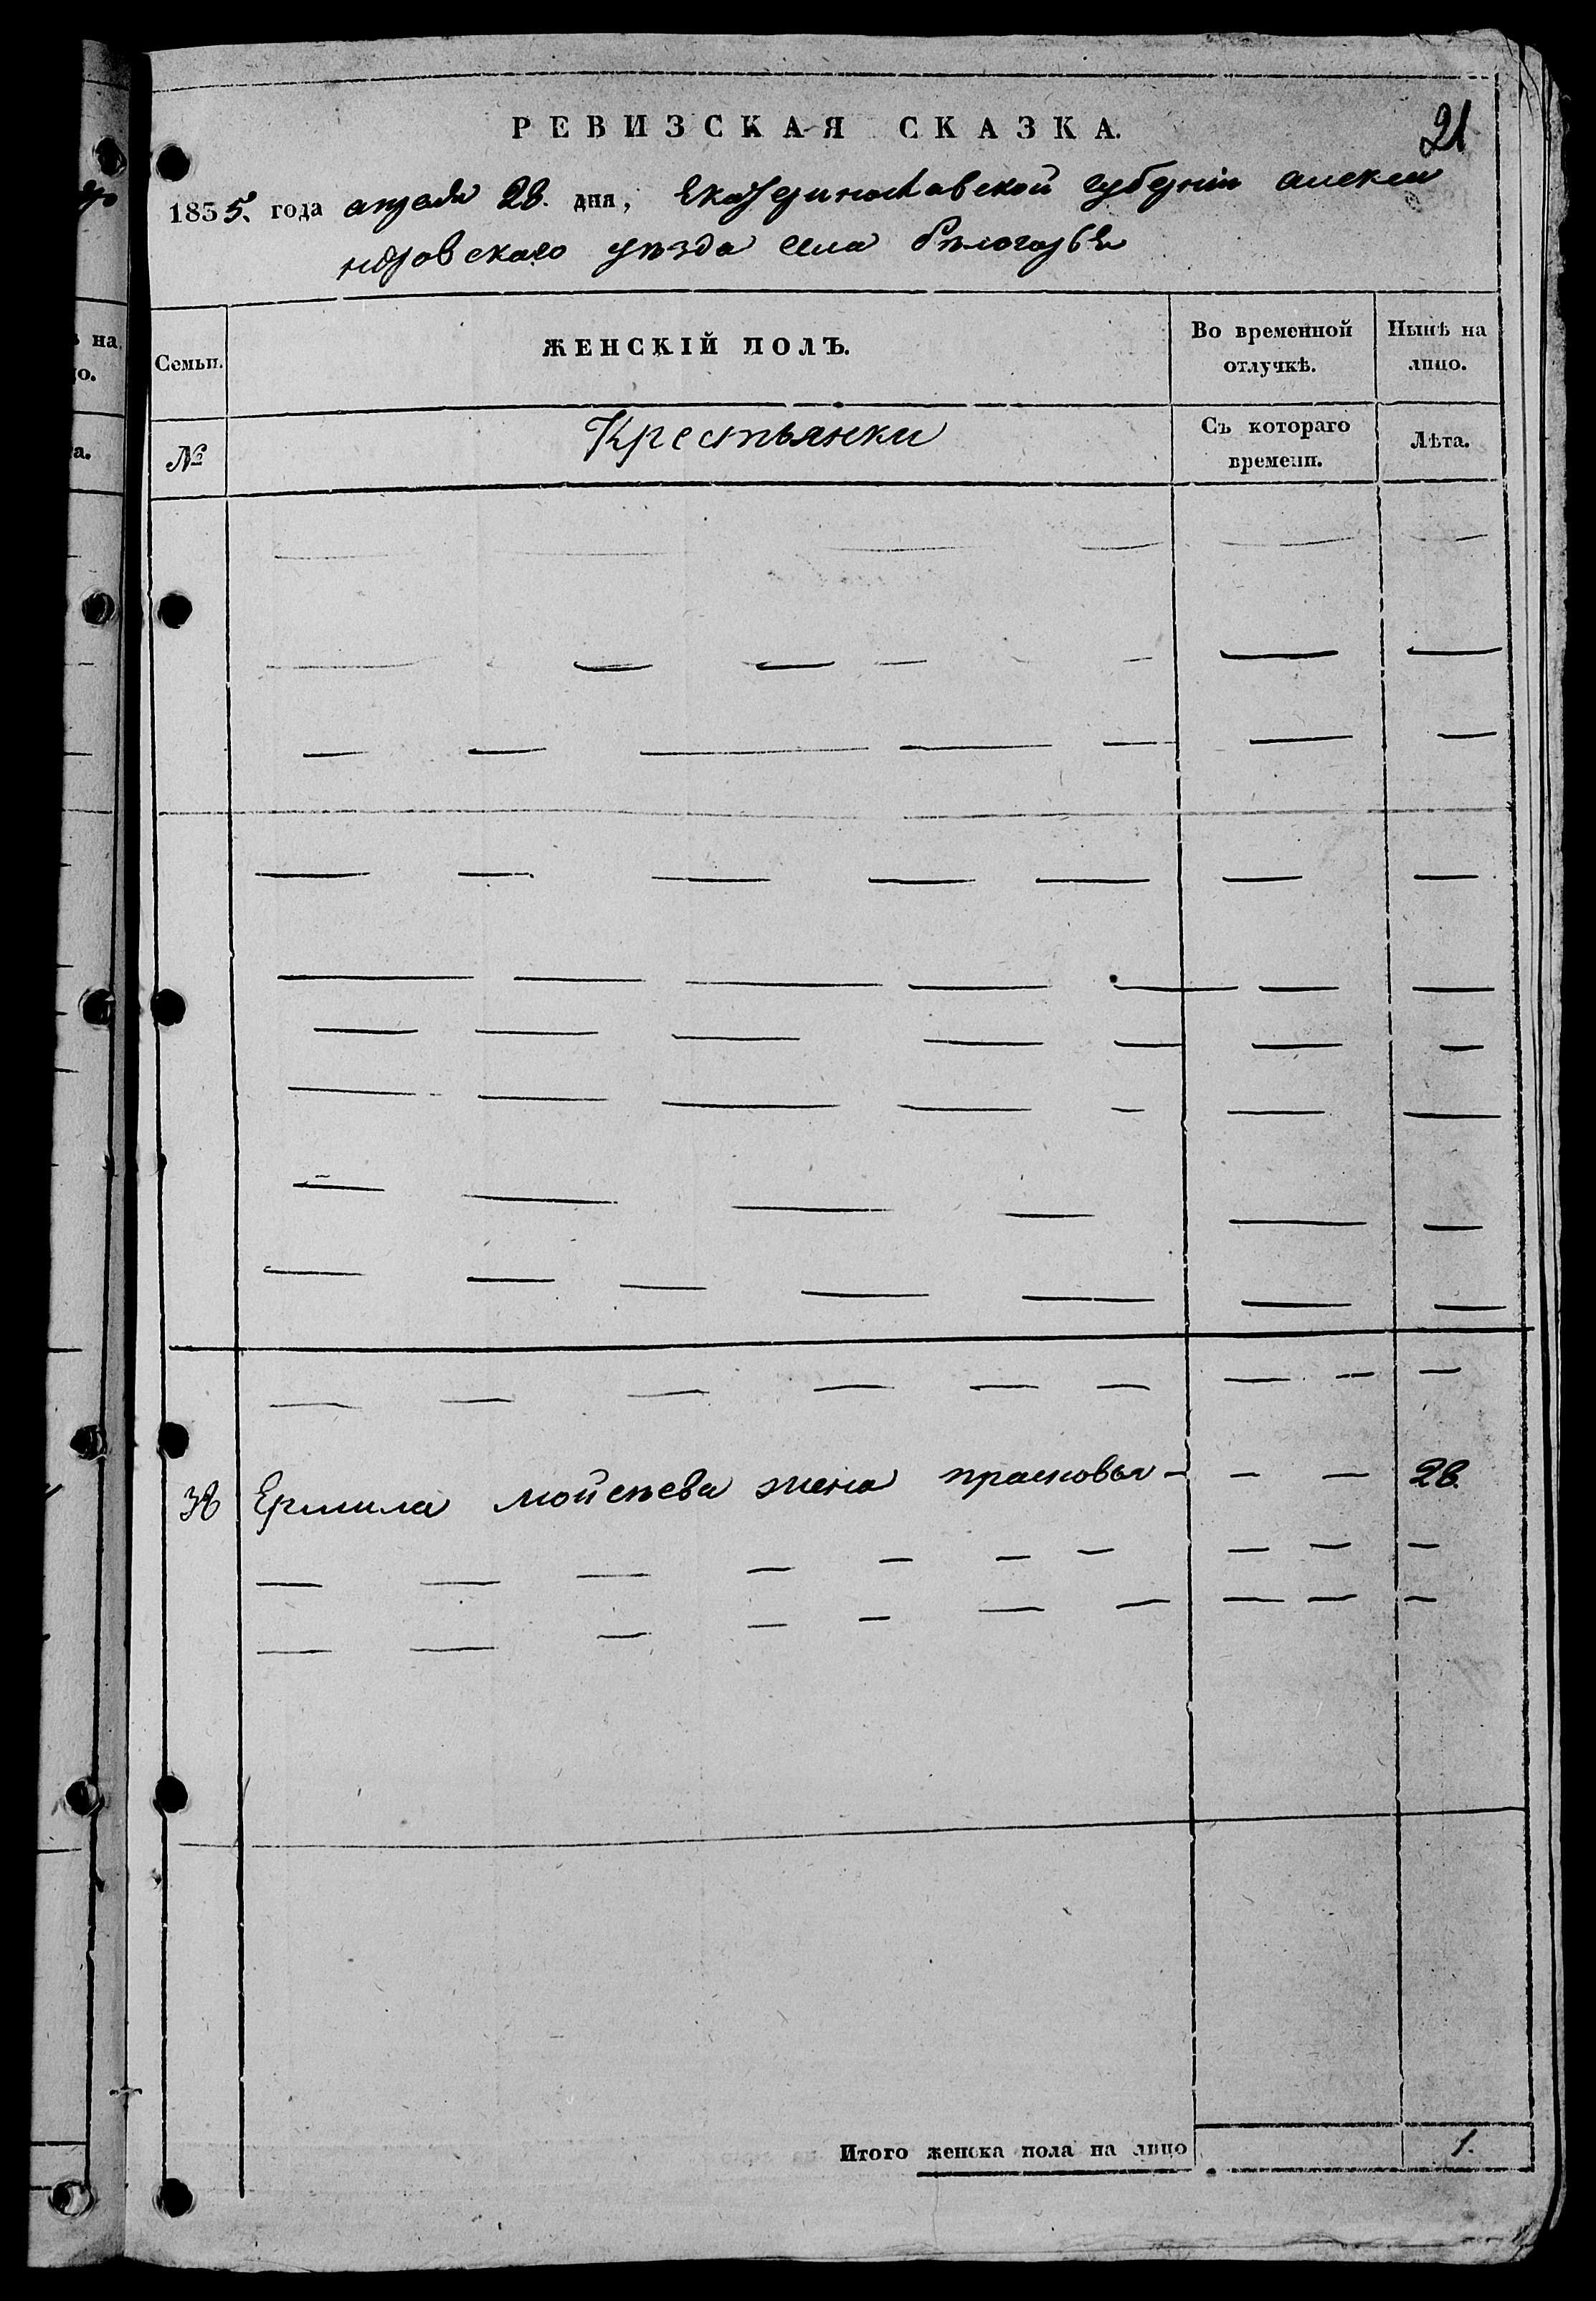 РЕВИЗСКАЯ СКАЗКА.
21
1855. года апреля 28. дня, Екатеринославской губерніи Алекса
ндровскаго уѣзда села Бѣлогорья
Семьи.
ЖЕНСКІЙ ПОЛЪ.
Во временной отлучкѣ.
Нынѣ на лицо.
№
Крестьянки
Съ котораго времени.
Лѣта.
38 Ермила Мойсѣева жена прасковья 28.
Итого женска пола на лицо 1.